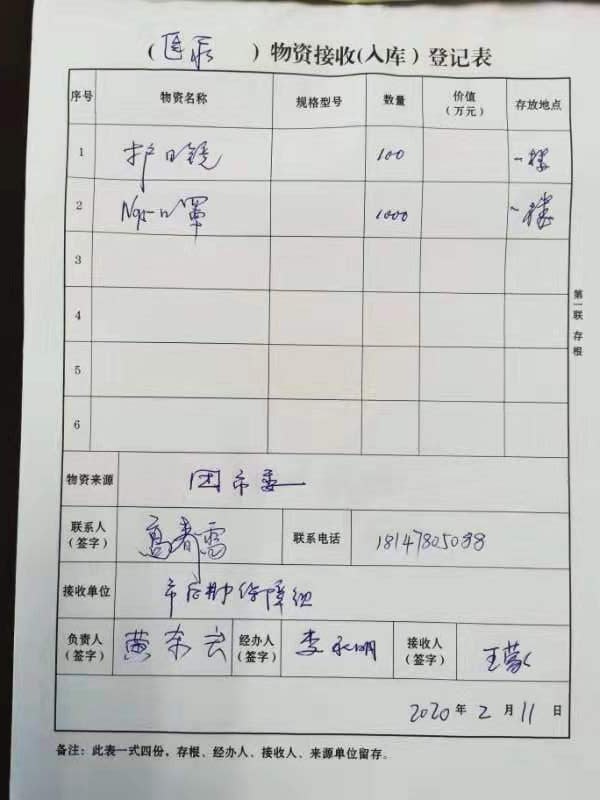 （医疗）物资接收(入库）登记表
序号 物资名称 规格型号 数量 价值（万元） 存放地点
1 护目镜 100 一楼
2 N95口罩 1000 一楼
3
4
5
6
第一联 存根
物资来源 团市委
联系人（签字） 高春雷 联系电话 18147805088
接收单位 市后勤保障组
负责人（签字） 黄东云 经办人（签字） 李永明 接收人（签字） 王蒙
2020年2月11日
备注：此表一式四份，存根、经办人、接收人、来源单位留存。